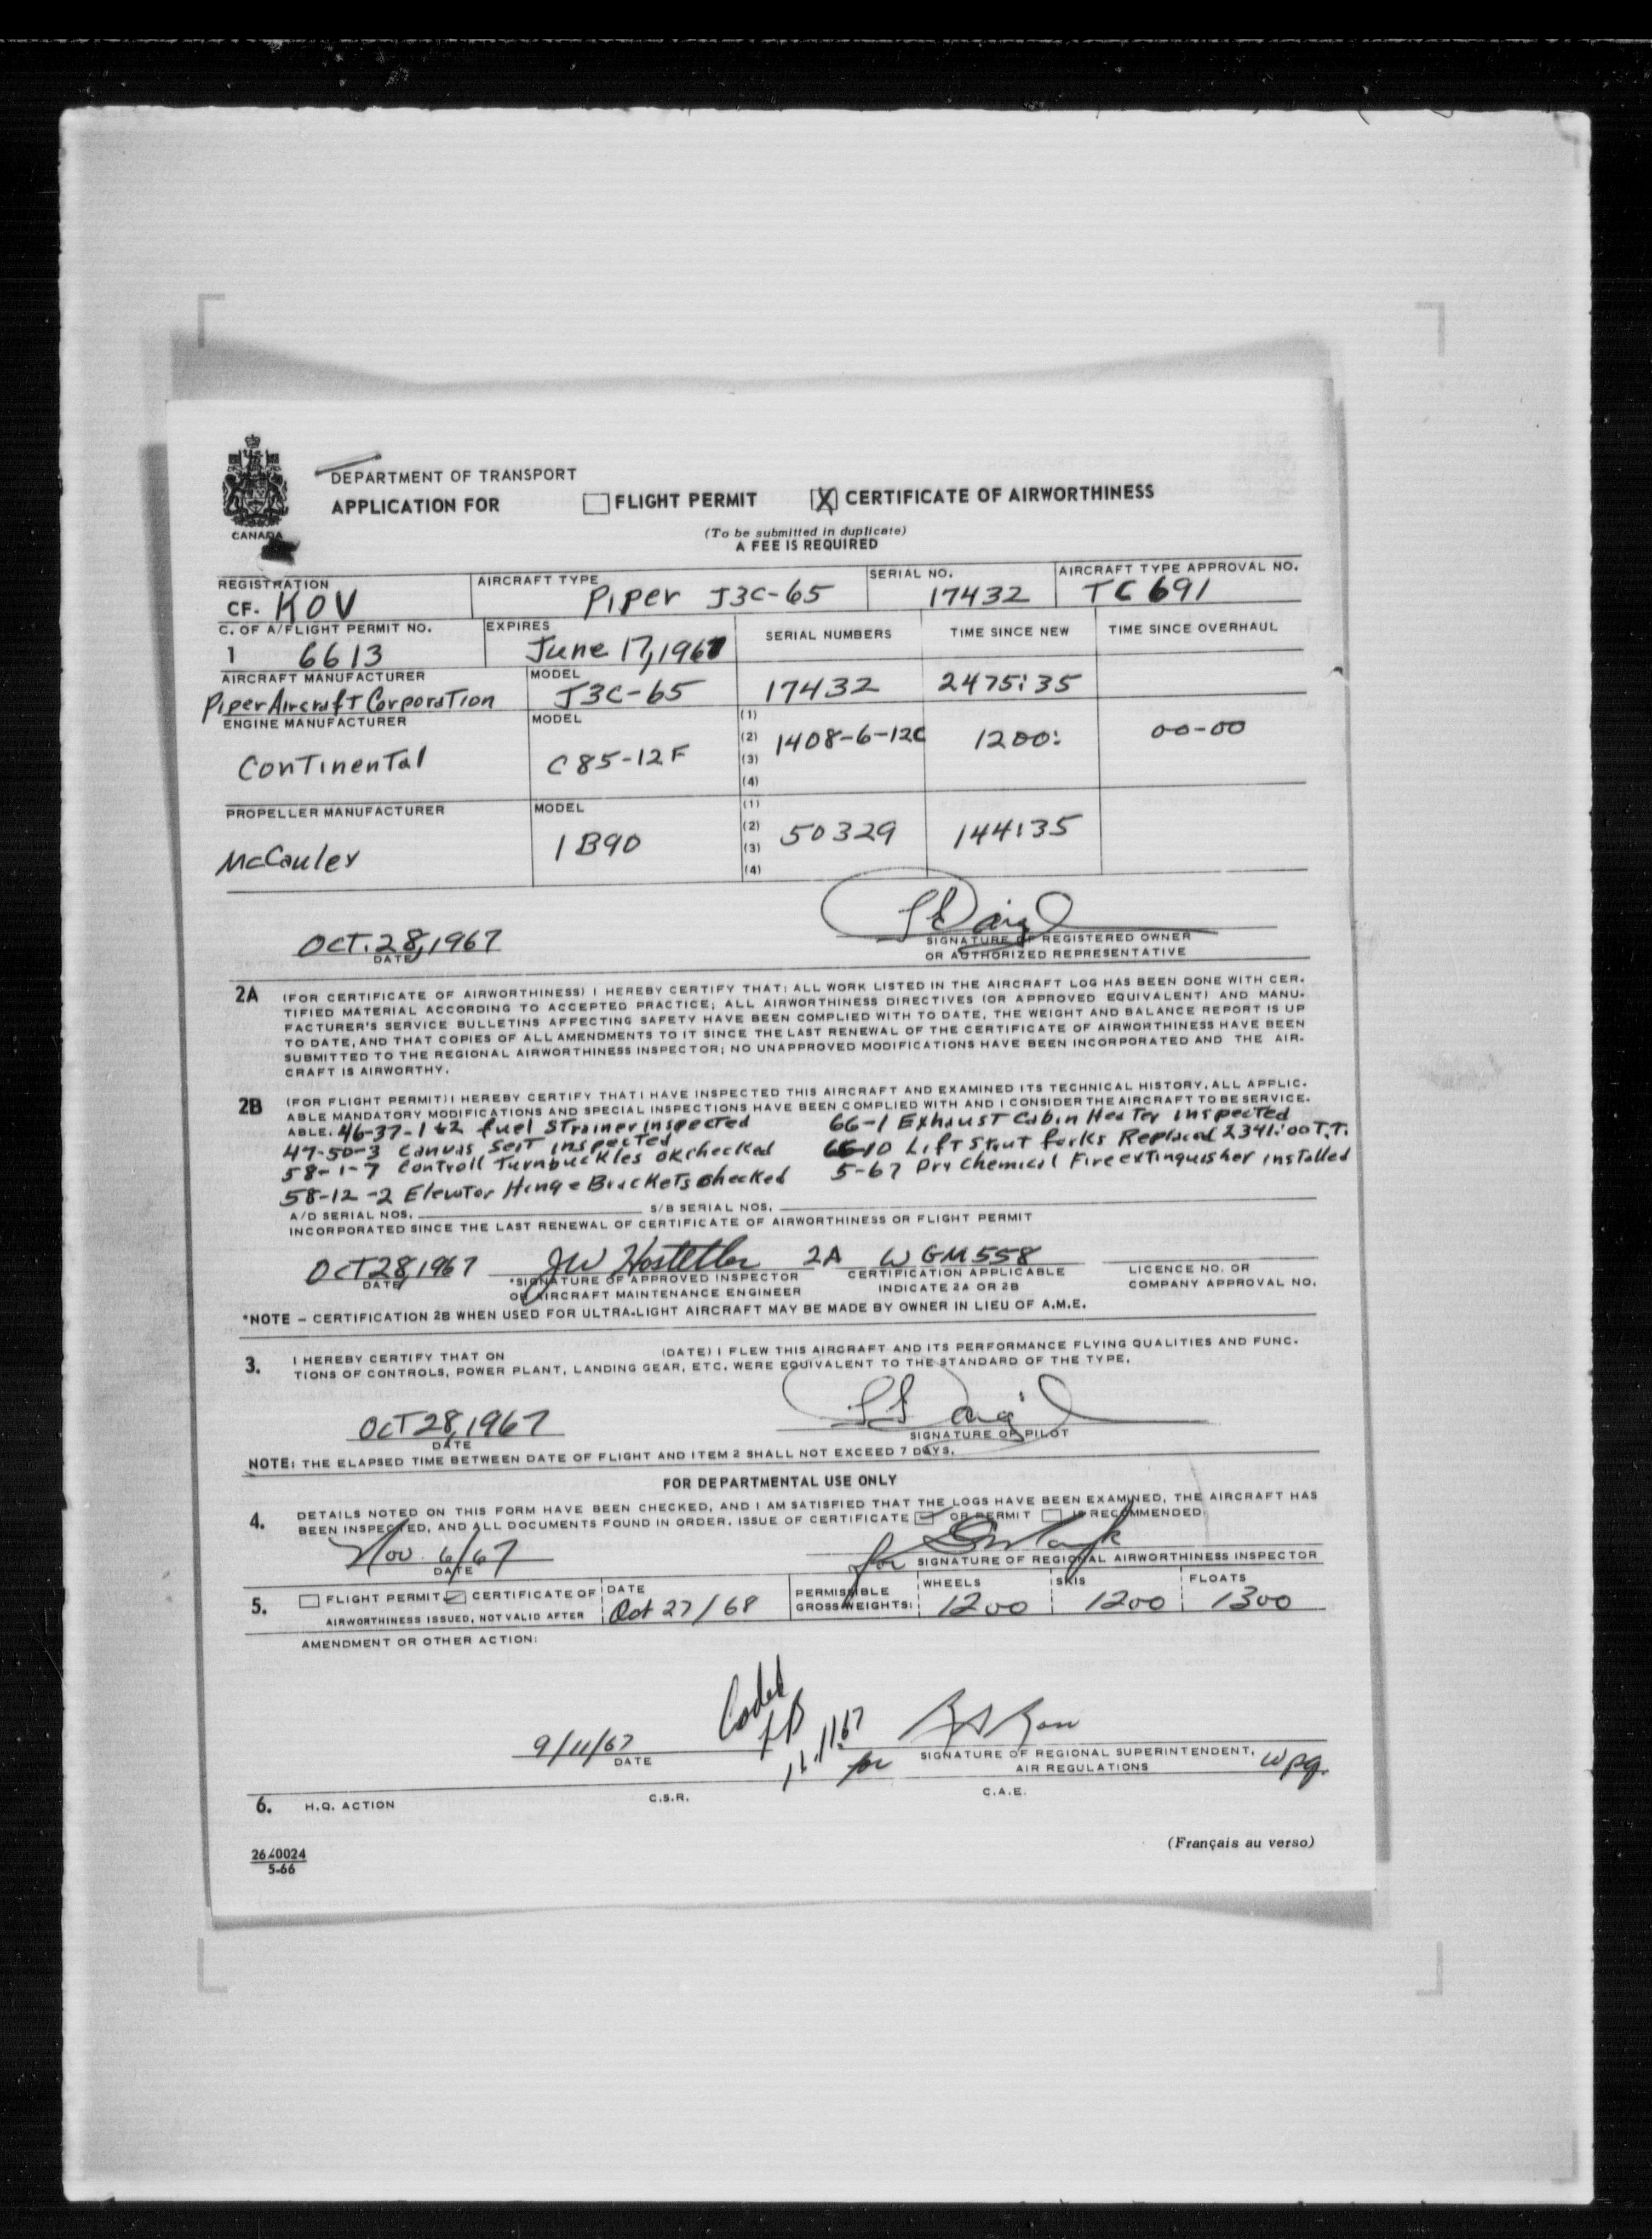 DEPARTMENT OF TRANSPORT
APPLICATION FOR FLIGHT PERMIT X CERTIFICATE OF AIRWORTHINESS
CANADA
(To be submitted in duplicate)
A FEE IS REQUIRED
REGISTRATION AIRCRAFT TYPE SERIAL NO. AIRCRAFT TYPE APPROVAL NO.
CF- KOV Piper J3C-65 17432 TC 691
C. OF A/FLIGHT PERMIT NO. EXPIRES SERIAL NUMBERS TIME SINCE NEW TIME SINCE OVERHAUL
1 6613 June 17, 1967
AIRCRAFT MANUFACTURER MODEL
Piper Aircraft Corporation J3C-65 17432 2475:35
ENGINE MANUFACTURER MODEL (1)
(2) 1408-6-12C 1200: 00-00
Continental C85-12F (3)
(4)
PROPELLER MANUFACTURER MODEL (1)
(2) 50329 144:35
McCauley 1B90 (3)
(4)
OCT. 28, 1967
DATE
SIGNATURE OF REGISTERED OWNER
OR AUTHORIZED REPRESENTATIVE
2A (FOR CERTIFICATE OF AIRWORTHINESS) I HEREBY CERTIFY THAT: ALL WORK LISTED IN THE AIRCRAFT LOG HAS BEEN DONE WITH CER-
TIFIED MATERIAL ACCORDING TO ACCEPTED PRACTICE; ALL AIRWORTHINESS DIRECTIVES (OR APPROVED EQUIVALENT) AND MANU-
FACTURER'S SERVICE BULLETINS AFFECTING SAFETY HAVE BEEN COMPLIED WITH TO DATE, THE WEIGHT AND BALANCE REPORT IS UP
TO DATE, AND THAT COPIES OF ALL AMENDMENTS TO IT SINCE THE LAST RENEWAL OF THE CERTIFICATE OF AIRWORTHINESS HAVE BEEN
SUBMITTED TO THE REGIONAL AIRWORTHINESS INSPECTOR; NO UNAPPROVED MODIFICATIONS HAVE BEEN INCORPORATED AND THE AIR-
CRAFT IS AIRWORTHY.
2B (FOR FLIGHT PERMIT) I HEREBY CERTIFY THAT I HAVE INSPECTED THIS AIRCRAFT AND EXAMINED ITS TECHNICAL HISTORY. ALL APPLIC-
ABLE MANDATORY MODIFICATIONS AND SPECIAL INSPECTIONS HAVE BEEN COMPLIED WITH AND I CONSIDER THE AIRCRAFT TO BE SERVICE-
ABLE. 46-37-1 &2 fuel Strainer inspected 66-1 Exhaust Cabin Heater inspected
47-50-3 Canvas Seat inspected 66-10 Lift Strut forks Replaced 2341:00 T.T.
58-1-7 Controll Turnbuckles OK checked 5-67 Dry Chemical Fire extinguisher installed
58-12-2 Elevator Hinge Brackets checked
A/D SERIAL NOS. S/B SERIAL NOS.
INCORPORATED SINCE THE LAST RENEWAL OF CERTIFICATE OF AIRWORTHINESS OR FLIGHT PERMIT
OCT 28, 1967 JW Hostetler 2A WGM 558
DATE *SIGNATURE OF APPROVED INSPECTOR CERTIFICATION APPLICABLE LICENCE NO. OR
OR AIRCRAFT MAINTENANCE ENGINEER INDICATE 2A OR 2B COMPANY APPROVAL NO.
*NOTE - CERTIFICATION 2B WHEN USED FOR ULTRA-LIGHT AIRCRAFT MAY BE MADE BY OWNER IN LIEU OF A.M.E.
3. I HEREBY CERTIFY THAT ON (DATE) I FLEW THIS AIRCRAFT AND ITS PERFORMANCE FLYING QUALITIES AND FUNC-
TIONS OF CONTROLS, POWER PLANT, LANDING GEAR, ETC. WERE EQUIVALENT TO THE STANDARD OF THE TYPE.
OCT 28, 1967
DATE SIGNATURE OF PILOT
NOTE: THE ELAPSED TIME BETWEEN DATE OF FLIGHT AND ITEM 2 SHALL NOT EXCEED 7 DAYS.
FOR DEPARTMENTAL USE ONLY
4. DETAILS NOTED ON THIS FORM HAVE BEEN CHECKED, AND I AM SATISFIED THAT THE LOGS HAVE BEEN EXAMINED, THE AIRCRAFT HAS
BEEN INSPECTED, AND ALL DOCUMENTS FOUND IN ORDER. ISSUE OF CERTIFICATE OR PERMIT IS RECOMMENDED.
Nov. 6/67 for
DATE SIGNATURE OF REGIONAL AIRWORTHINESS INSPECTOR
5. FLIGHT PERMIT CERTIFICATE OF DATE PERMISSIBLE WHEELS SKIS FLOATS
AIRWORTHINESS ISSUED, NOT VALID AFTER Oct 27/68 GROSS WEIGHTS: 1200 1200 1300
AMENDMENT OR OTHER ACTION:
Coded
9/11/67 for
DATE SIGNATURE OF REGIONAL SUPERINTENDENT, Wpg.
AIR REGULATIONS
6. H.Q. ACTION C.S.R. C.A.E.
(Français au verso)
2640024
5-66